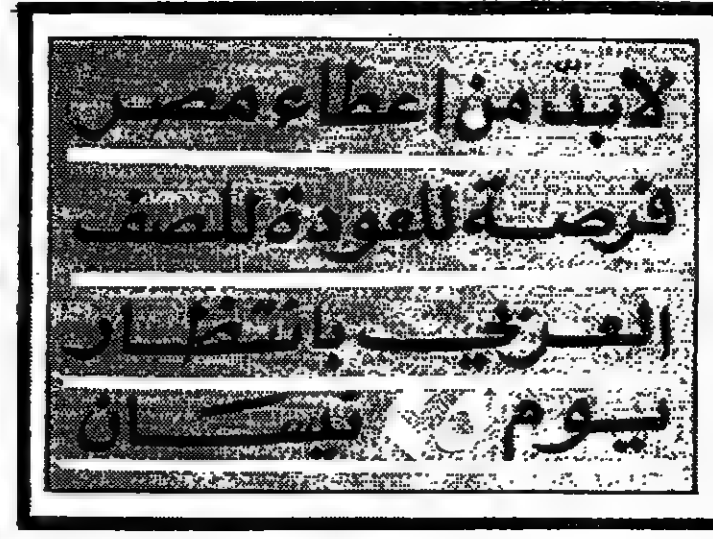 لابدّ من اعطاء مصر
فرصة للعودة للصف
العربي بانتظار
يوم ٢٥ نيسان